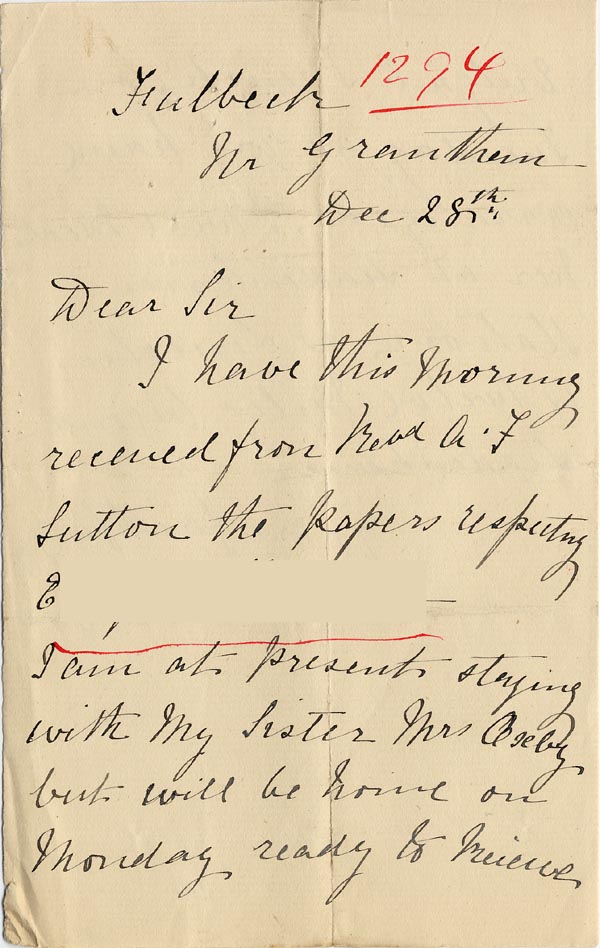 Fulbeck 1294
Nr Grantham
Dec 28th
Dear Sir
I have this Morning
received from Revd A. F
Sutton the papers respecting
E
I am at present staying
with My Sister Mrs
but will be home on
Monday ready to Recieve